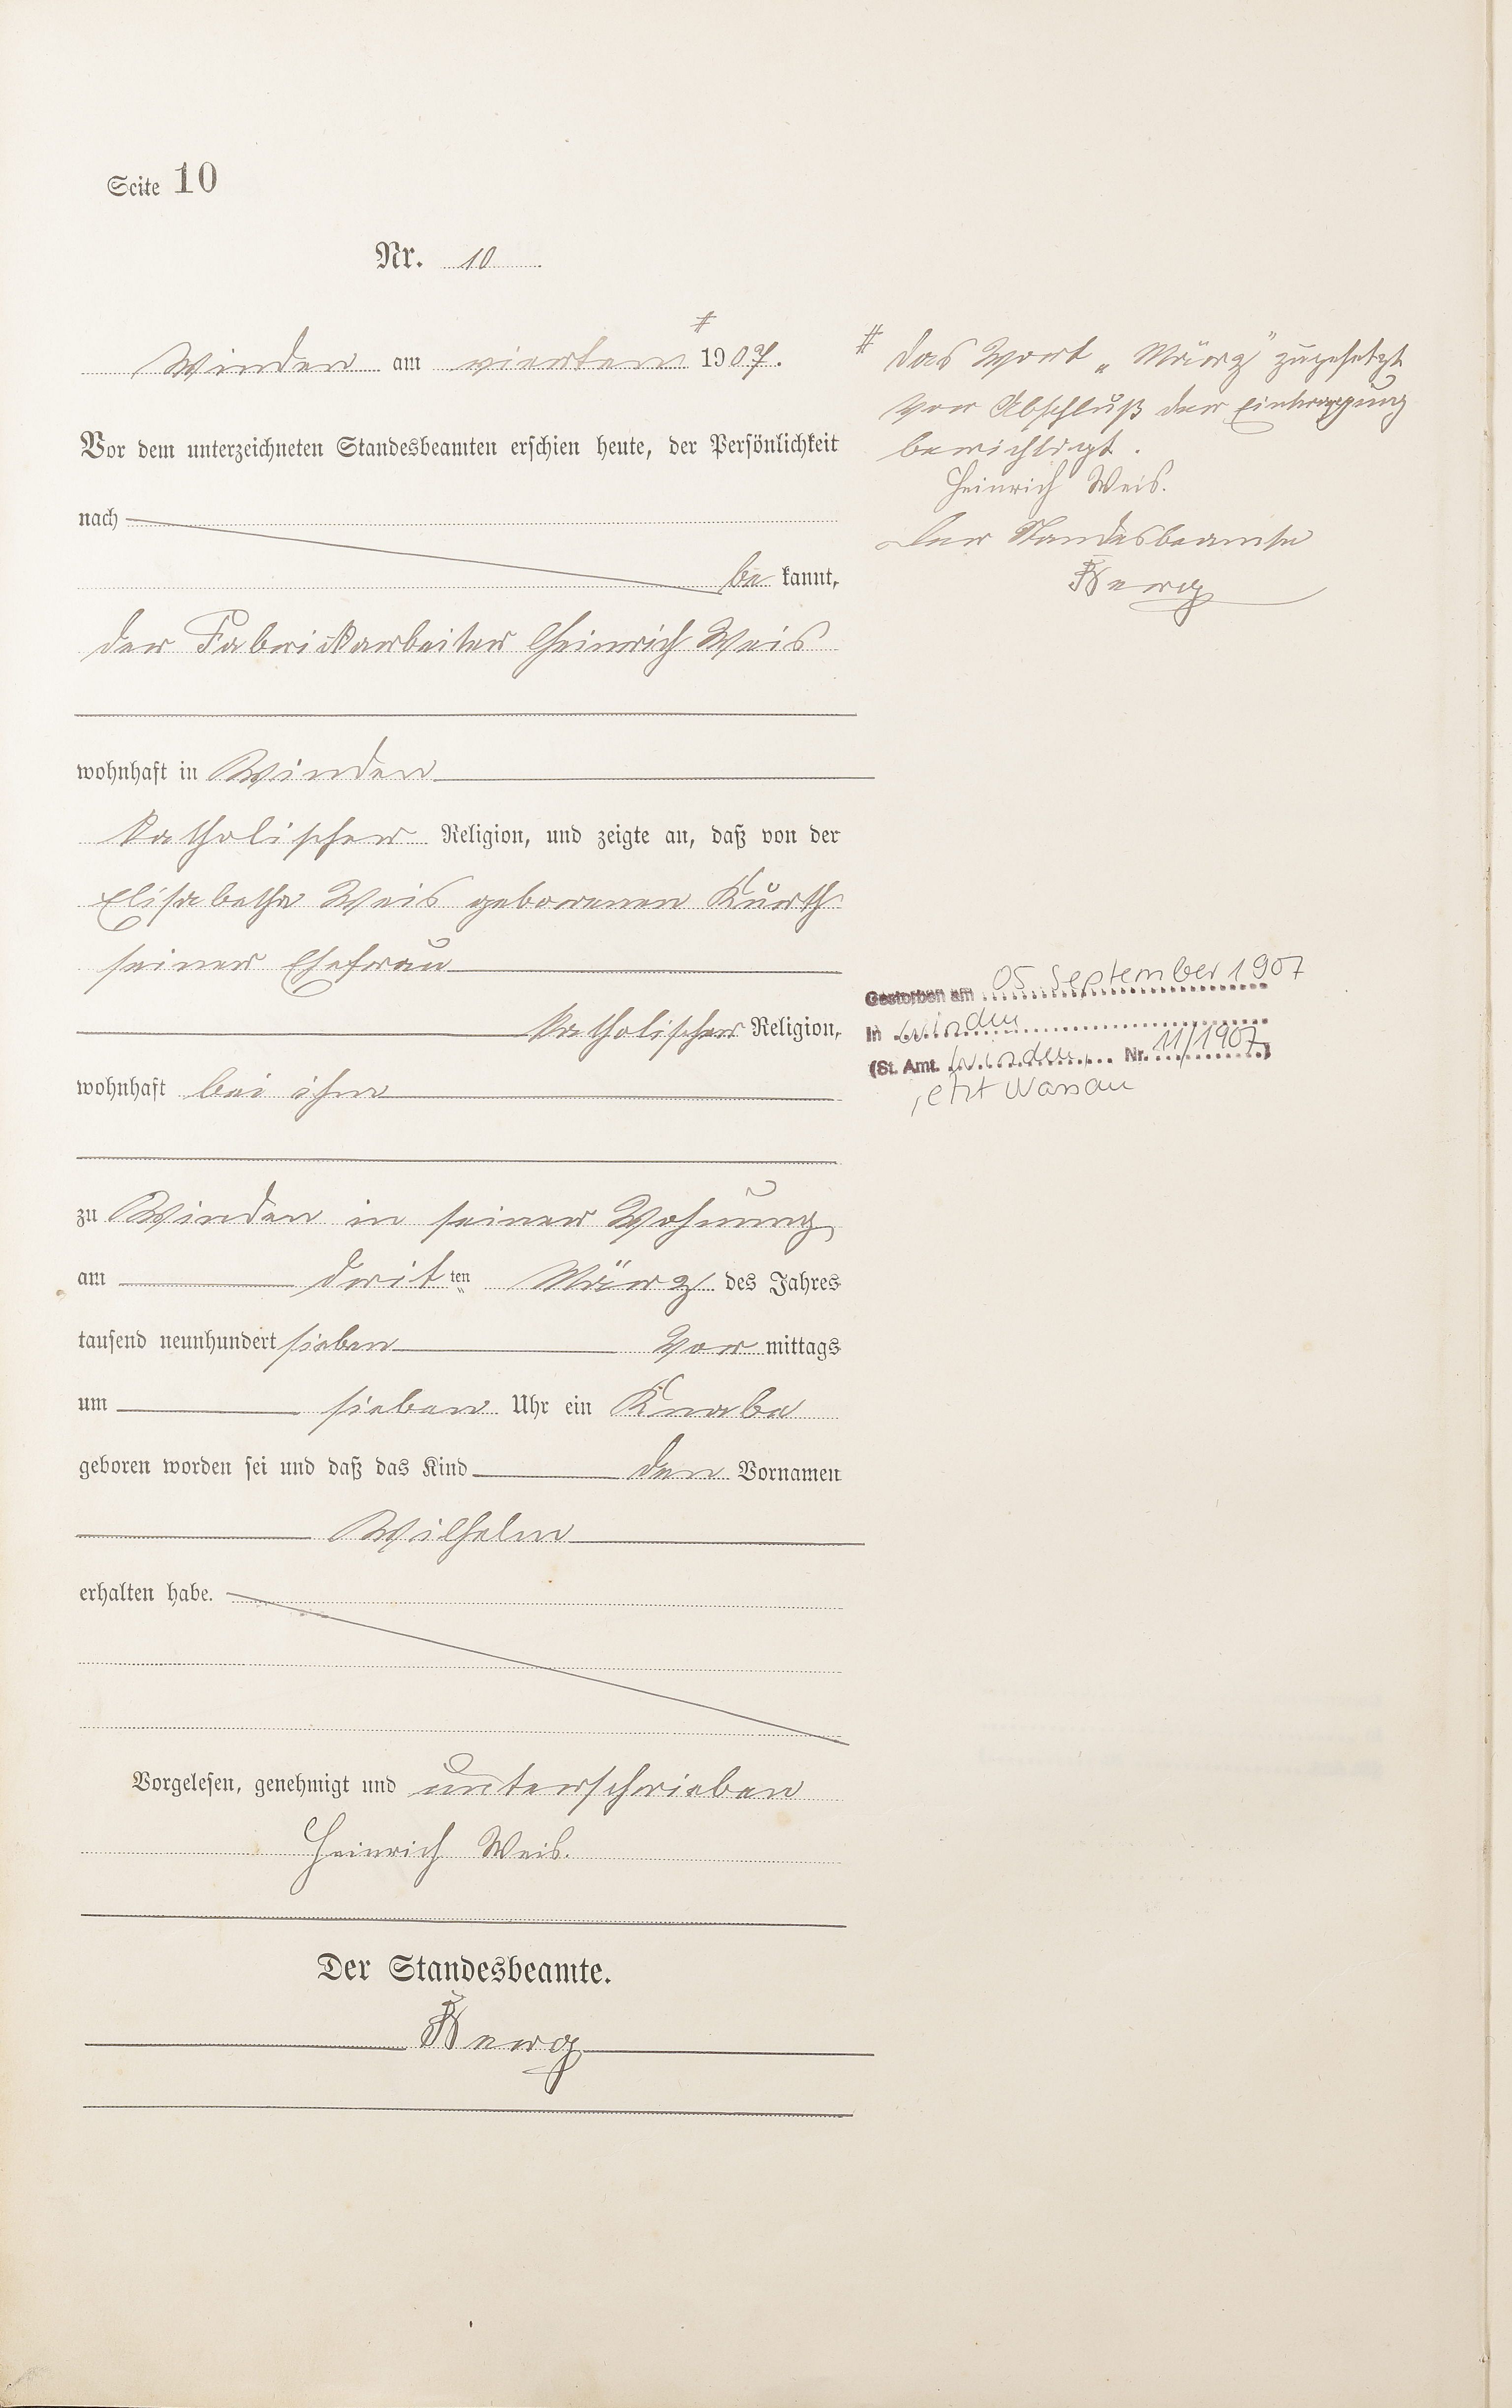 Seite 10
Nr. 10
Winden am vierten # 1907.
Vor dem unterzeichneten Standesbeamten erschien heute, der Persönlichkeit
nach
be kannt,
der Fabrickarbeiter Heinrich Weis
wohnhaft in Winden
katholischer Religion, und zeigte an, daß von der
Elisabetha Weis geborenen Kurth
seiner Ehefrau
katholischer Religion,
wohnhaft bei ihm
zu Winden in seiner Wohnung
am dritten März des Jahres
tausend neunhundert sieben Vor mittags
um sieben Uhr ein Knabe
geboren worden sei und daß das Kind den Vornamen
Wilhelm
erhalten habe.
Vorgelesen, genehmigt und unterschrieben
Heinrich Weis.
Der Standesbeamte.
# das Wort „März" zugesetzt
vor Abschluß der Eintragung
berichtigt.
Heinrich Weis.
Der Standesbeamte
Gestorben am 05 September 1907
In Winden
(St. Amt. Winden Nr. 11/1907)
jetzt Nassau